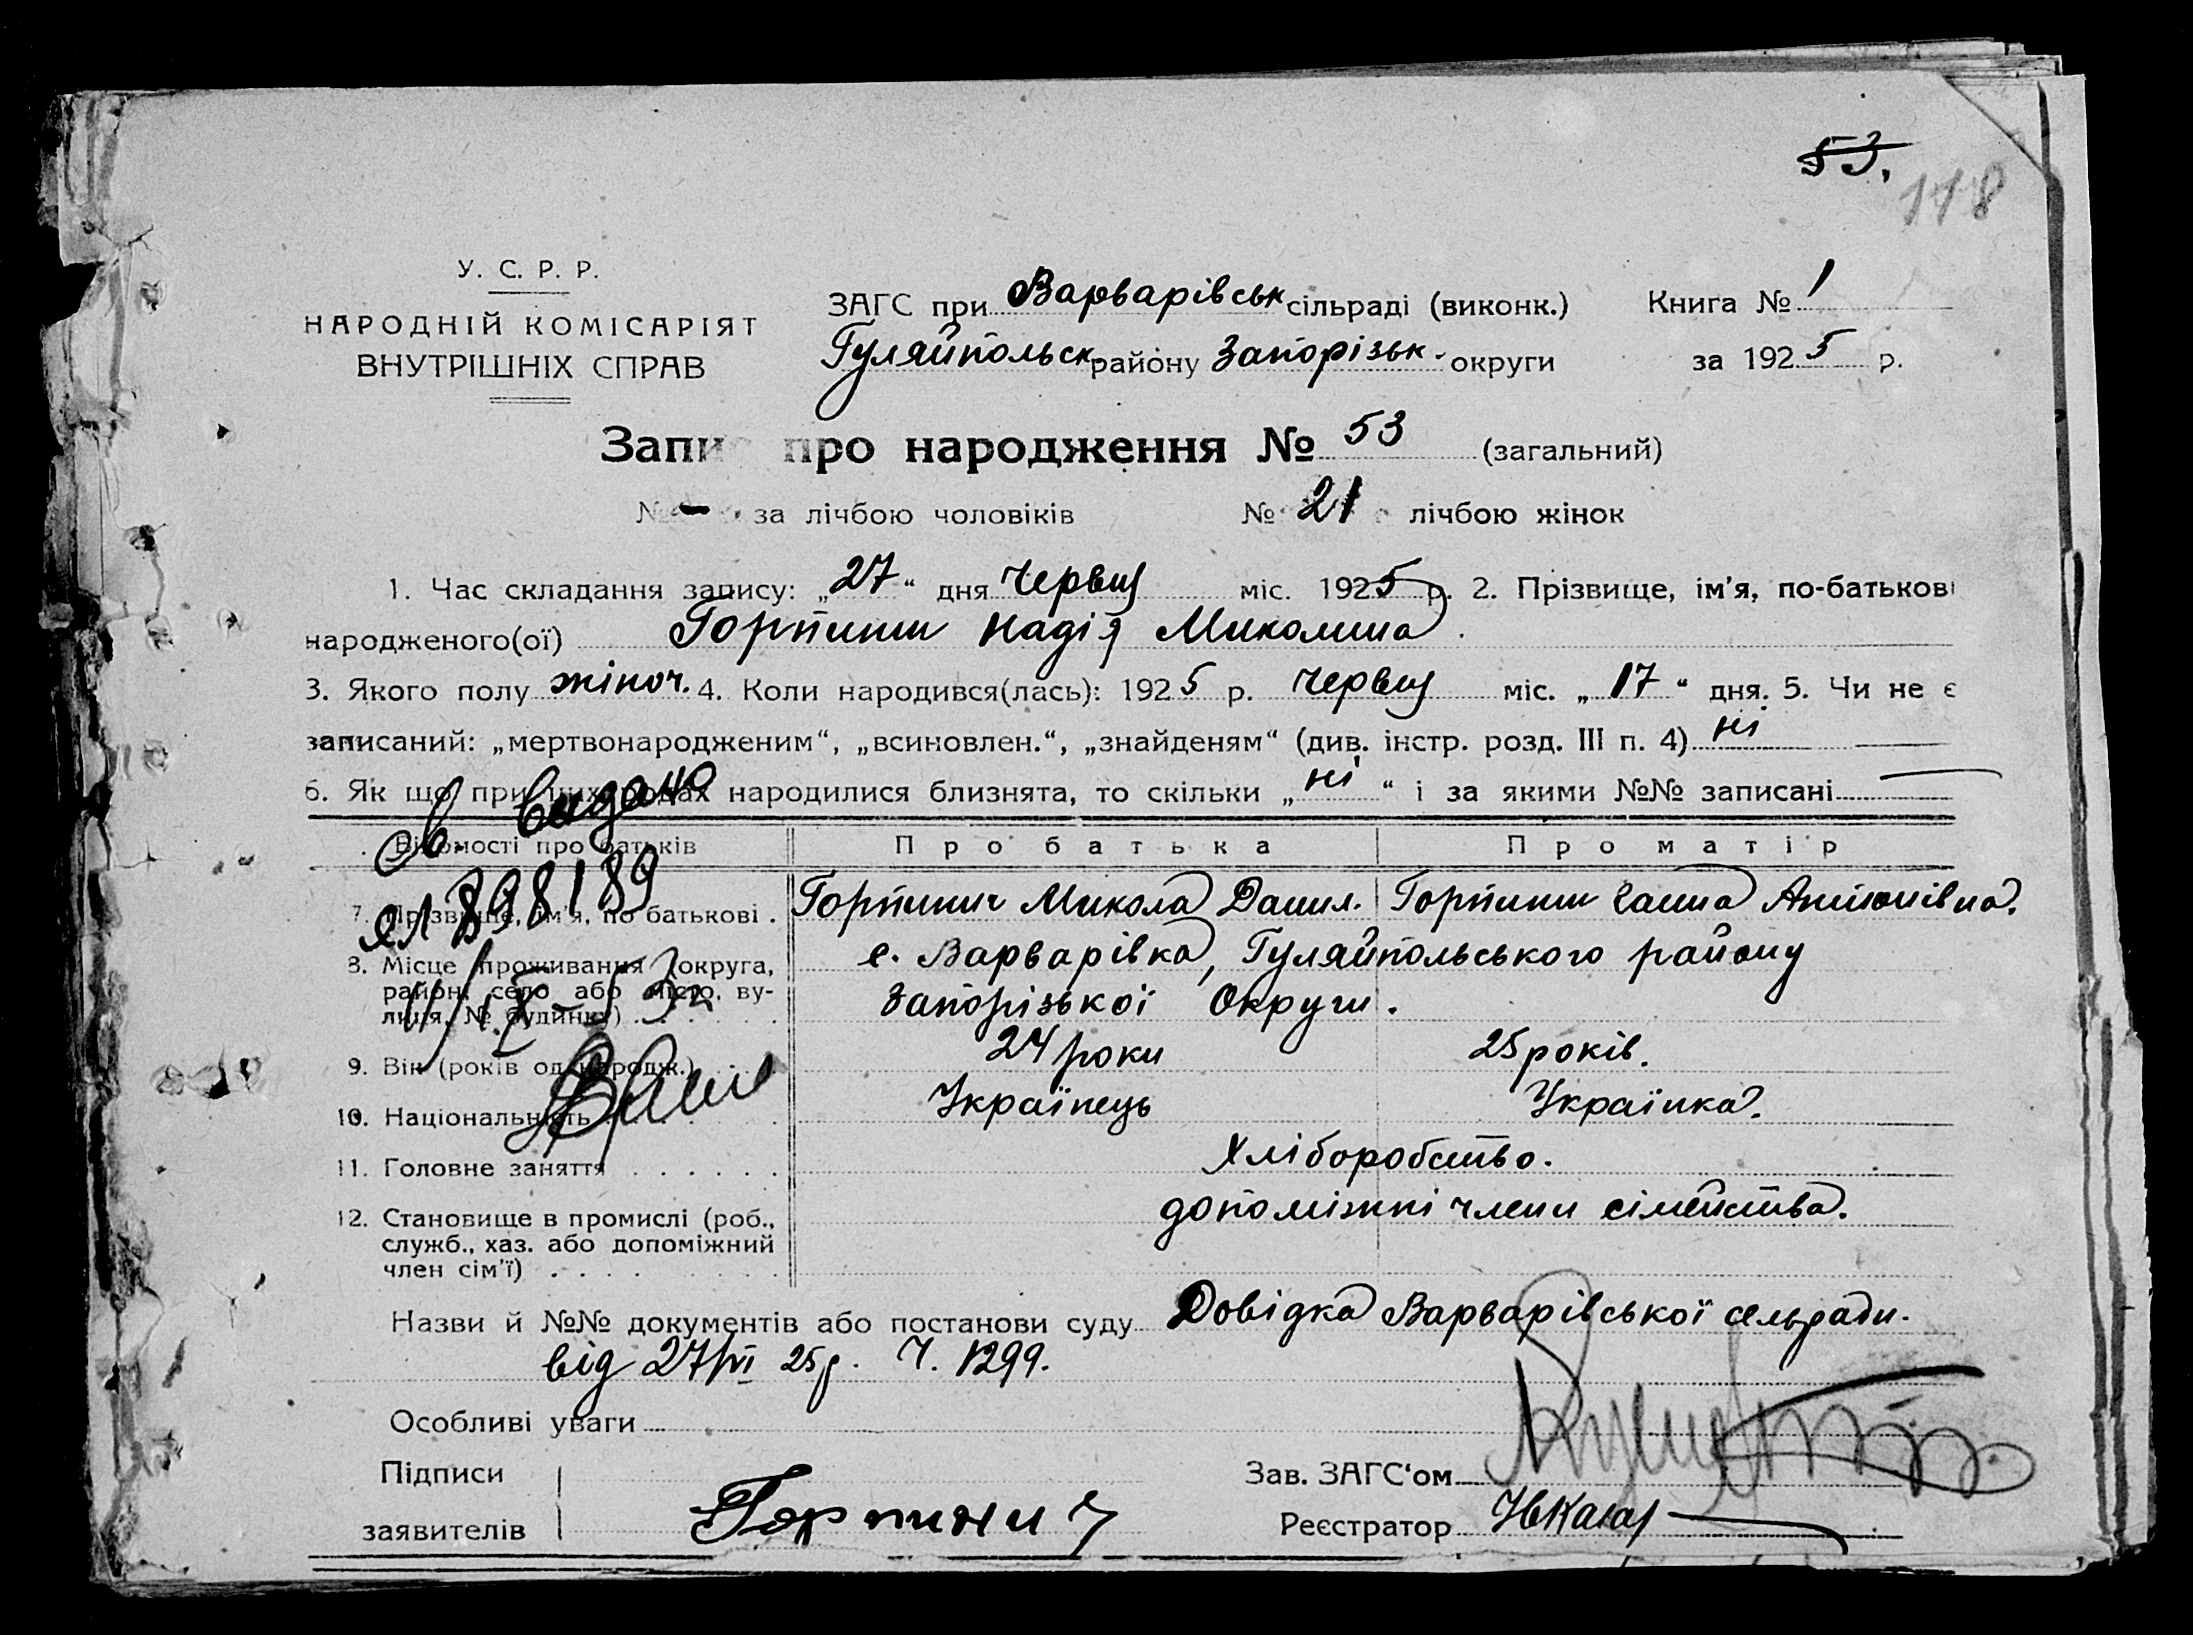 53.
118
У. С. Р. Р.
НАРОДНІЙ КОМІСАРІЯТ
ВНУТРІШНІХ СПРАВ
ЗАГС при Варварівськ сільраді (виконк.)
Гуляйпольск району Запорізьк. округи
Книга № 1
за 1925 р.
Запис про народження № 53 (загальний)
№ - за лічбою чоловіків № 21 лічбою жінок
1. Час складання запису: „27“ дня червця міс. 1925 р. 2. Прізвище, ім'я, по-батькові
народженого(ої) Горпинич Надія Миколаївна.
3. Якого полу жіноч. 4. Коли народився(лась): 1925 р. червця міс. „17“ дня. 5. Чи не є
записаний: „мертвонародженим“, „всиновлен.“, „знайденям“ (див. інстр. розд. III п. 4) ні
6. Як що при цих родах народилися близнята, то скільки „ні“ і за якими №№ записані
Св. видано
Відомості про батьків
Про батька
Про матір
ЯЛ 898189
7. Прізвище, ім'я, по батькові .
Горпинич Микола Данил.
Горпинич Ганна Антонівна.
8. Місце проживання (округа,
район, село або місто, ву-
лиця, № будинку)
с. Варварівка, Гуляйпольського району
Запорізької Округи.
9. Вік (років од народж.)
24 роки
25 років.
10. Національність
Українець
Українка.
11. Головне заняття
Хліборобство.
12. Становище в промислі (роб.,
служб., хаз. або допоміжний
член сім'ї)
допоміжні члени сімейства.
Назви й №№ документів або постанови суду Довідка Варварівської сельради.
від 27/VI 25р. Ч. 1299.
Особливі уваги
Підписи
заявителів
Горпинич
Зав. ЗАГС'ом
Реєстратор